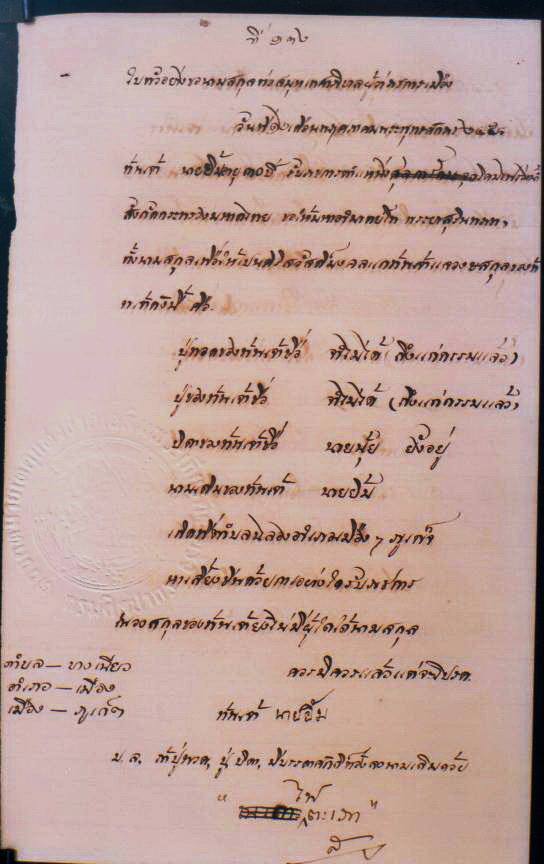 ที่ ๑๓๖
ใบตัวอย่างขอนามสกุลต่อสมุหเทศาภิบาลผู้ว่าราชการเมือง
วันที่ เดือนพฤษภาคมพระพุทธศักราช
ข้าพเจ้า นายยิ้มอายุ ๓๐ ปี รับราชการตำแหน่ง
สังกัดกระทรวงมหาดไทย ขอให้
ตั้งนามสกุลเพื่อให้เป็นศรีสวัสดิ์มงคลแก่ข้าพเจ้าแลวงษสกุลของข้า
พเจ้าดังนี้ คือ
ปู่ทวดของข้าพเจ้าชื่อ จำไม่ได้ (ถึงแก่กรรมแล้ว)
ปู่ของข้าพเจ้าชื่อ จำไม่ได้ (ถึงแก่กรรมแล้ว)
บิดาของข้าพเจ้าชื่อ นายฟุ้ย ยังอยู่
นามเดิมของข้าพเจ้า นายยิ้ม
เกิดที่ตำบลฉลองอำเภอเมือง ๆ ภูเก็จ
หาเลี้ยงชีพด้วยการอย่างใดรับราชการ
ในวงศสกุลของข้าพเจ้ายังไม่มีผู้ใดได้นามสกุล
ควรมิควรแล้วแต่จะโปรด
ตำบล — บางเหนียว
อำเภอ — เมือง
เมือง — ภูเก็ต
ข้าพเจ้า นายยิ้ม
ป.ล. ถ้าปู่ทวด, ปู่ บิดา, มีบรรดาศักดิ์ให้ลงนามเดิมด้วย
" ไพ ตะเภา "